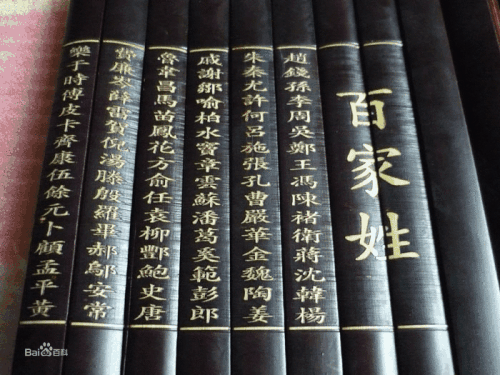 百家姓
趙錢孫李周吳鄭王馮陳褚衛蔣沈韓楊
朱秦尤許何呂施張孔曹嚴華金魏陶姜
戚謝鄒喻柏水竇章雲蘇潘葛奚範彭郎
魯韋昌馬苗鳳花方俞任袁柳酆鮑史唐
費廉岑薛雷賀倪湯滕殷羅畢郝鄔安常
樂于時傅皮卡齊康伍餘元卜顧孟平黃
Bai百科